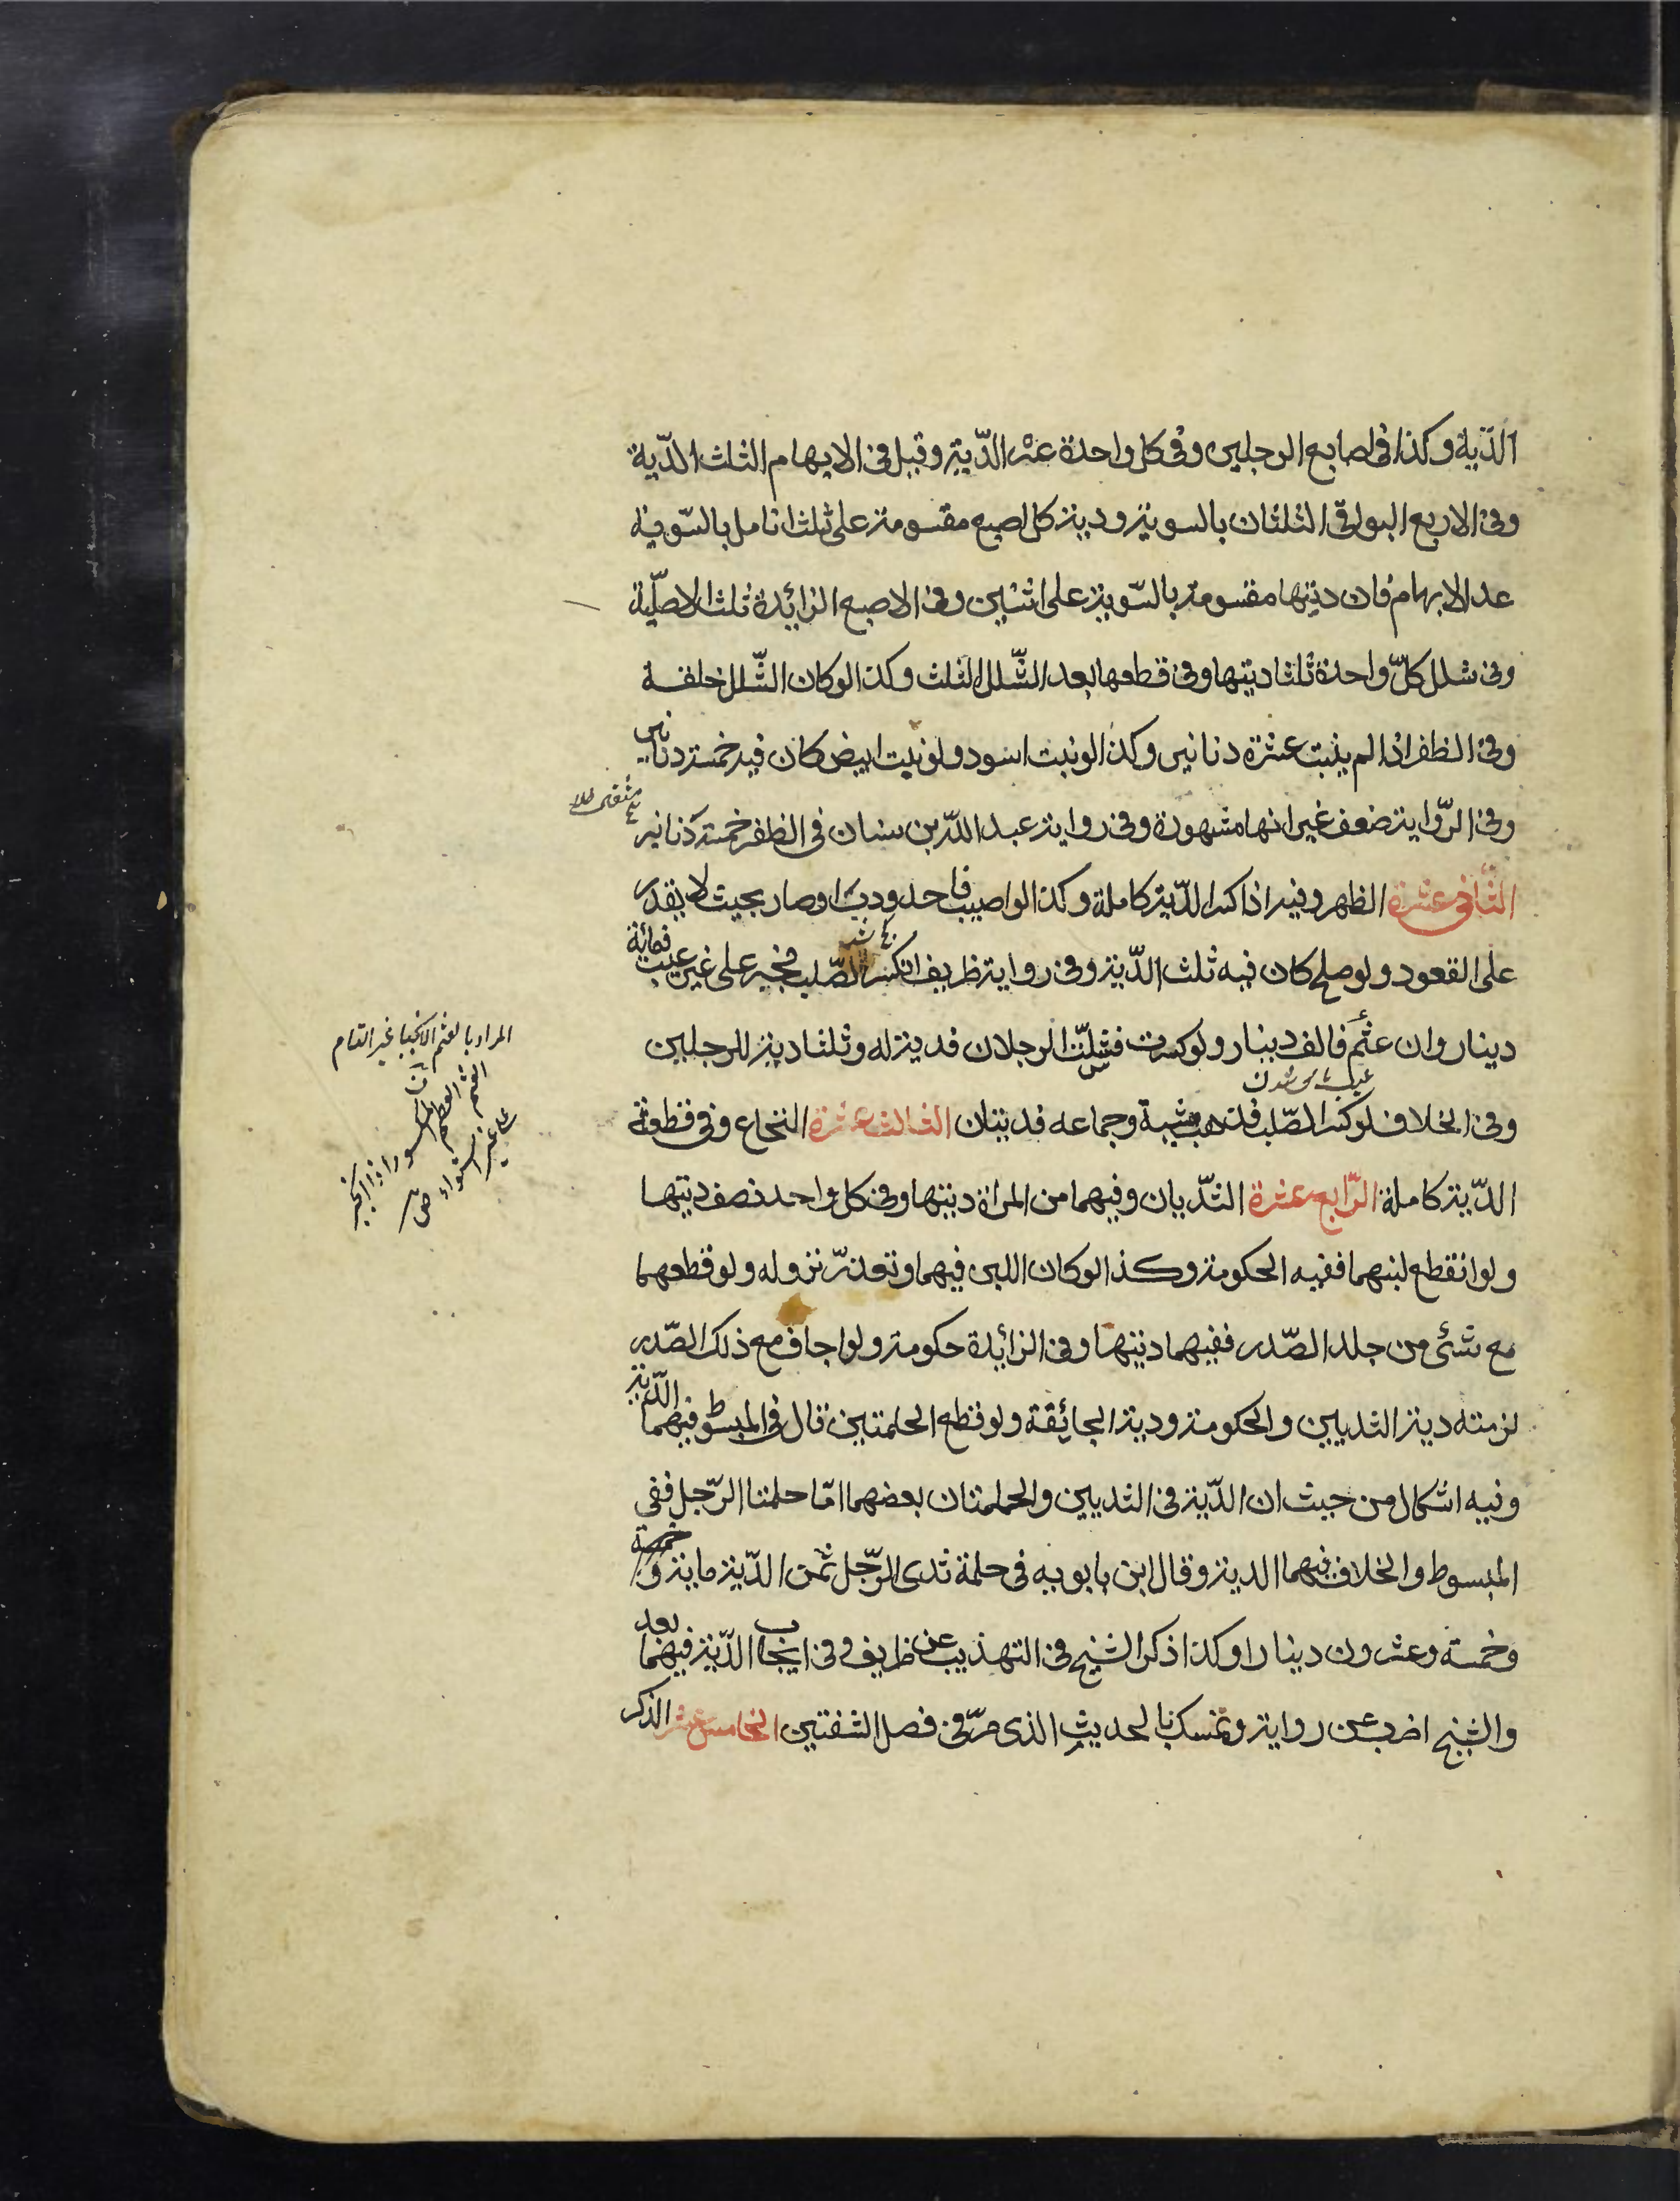 الدّية وكذا فى اصابع الرجلين وفى كل واحدة عشر الدّية وقيل فى الابهام الثلث الدّية
وفى الاربع البواقى الثلثان بالسوية ودية كل اصبع مقسومة على ثلث انامل بالسّوية
عدا الابهام فان ديتها مقسومة بالسّوية على اثنين وفى الاصبع الزائدة ثلث الاصلّية
وفى شلل كلّ واحدة ثلثا ديتها وفى قطعها بعد الشّلل الثلث وكذا لو كان الشّلل خلقة
وفى الظفر اذا لم ينبت عشرة دنانير وكذا لو نبت اسود ولو نبت ابيض كان فيه خمسة دنانير
وفى الرّواية ضعف غير انها مشهورة وفى رواية عبد اللّه بن سنان فى الظفر خمسة دنانير
الثّانى عشرة الظهر وفيه اذا كسر الدّية كاملة وكذا لو اصيب فاحدودب او صار بحيث لا يقدر
على القعود ولو صلح كان فيه ثلث الدّية وفى رواية ظريف ان كسر الصّلب فجبر على غير عيب فمائة
دينار وان عثم فالف دينار ولو كسرت فشلّت الرجلان فدية له وثلثا دية للرجلين
عيب ناك شدن
وفى الخلاف لو كسر الصّلب فذهب مشيه وجماعه فديتان الثالث عشرة النخاع وفى قطعة
الدّية كاملة الرّابع عشرة الثّديان وفيهما من المراة ديتها وفى كل واحد نصف ديتها
ولو انقطع لبنهما ففيه الحكومة وكذا لو كان اللبن فيهما وتعذرّ نزوله ولو قطعهما
مع شئ من جلد الصّدر ففيهما ديتها وفى الزائدة حكومة ولو اجاف مع ذلك الصّدر
لزمته دية الثديين والحكومة ودية الجائفة ولو قطع الحلمتين قال فى المبسوط فيهما الدّية
وفيه اشكال من حيث ان الدّية فى الثديين والحلمتان بعضهما امّا حلمتا الرّجل ففى
المبسوط والخلاف فيهما الدية وقال ابن بابويه فى حلمة ثدى الرّجل ثمن الدّية مائة و
وخمسة وعشرون دينارا وكذا ذكر الشيخ فى التهذيب عن ظريف وفى ايجاب الدّية فيهما بعد
والشيخ اضرب عن رواية وتمسك بالحديث الذى مرّ فى فصل الشفتين الخامس عشر الذكر
المراد بالعثم الانجبار غير التام
العثم فى العظم المكسور اذا انجبر
على غير استواء ص